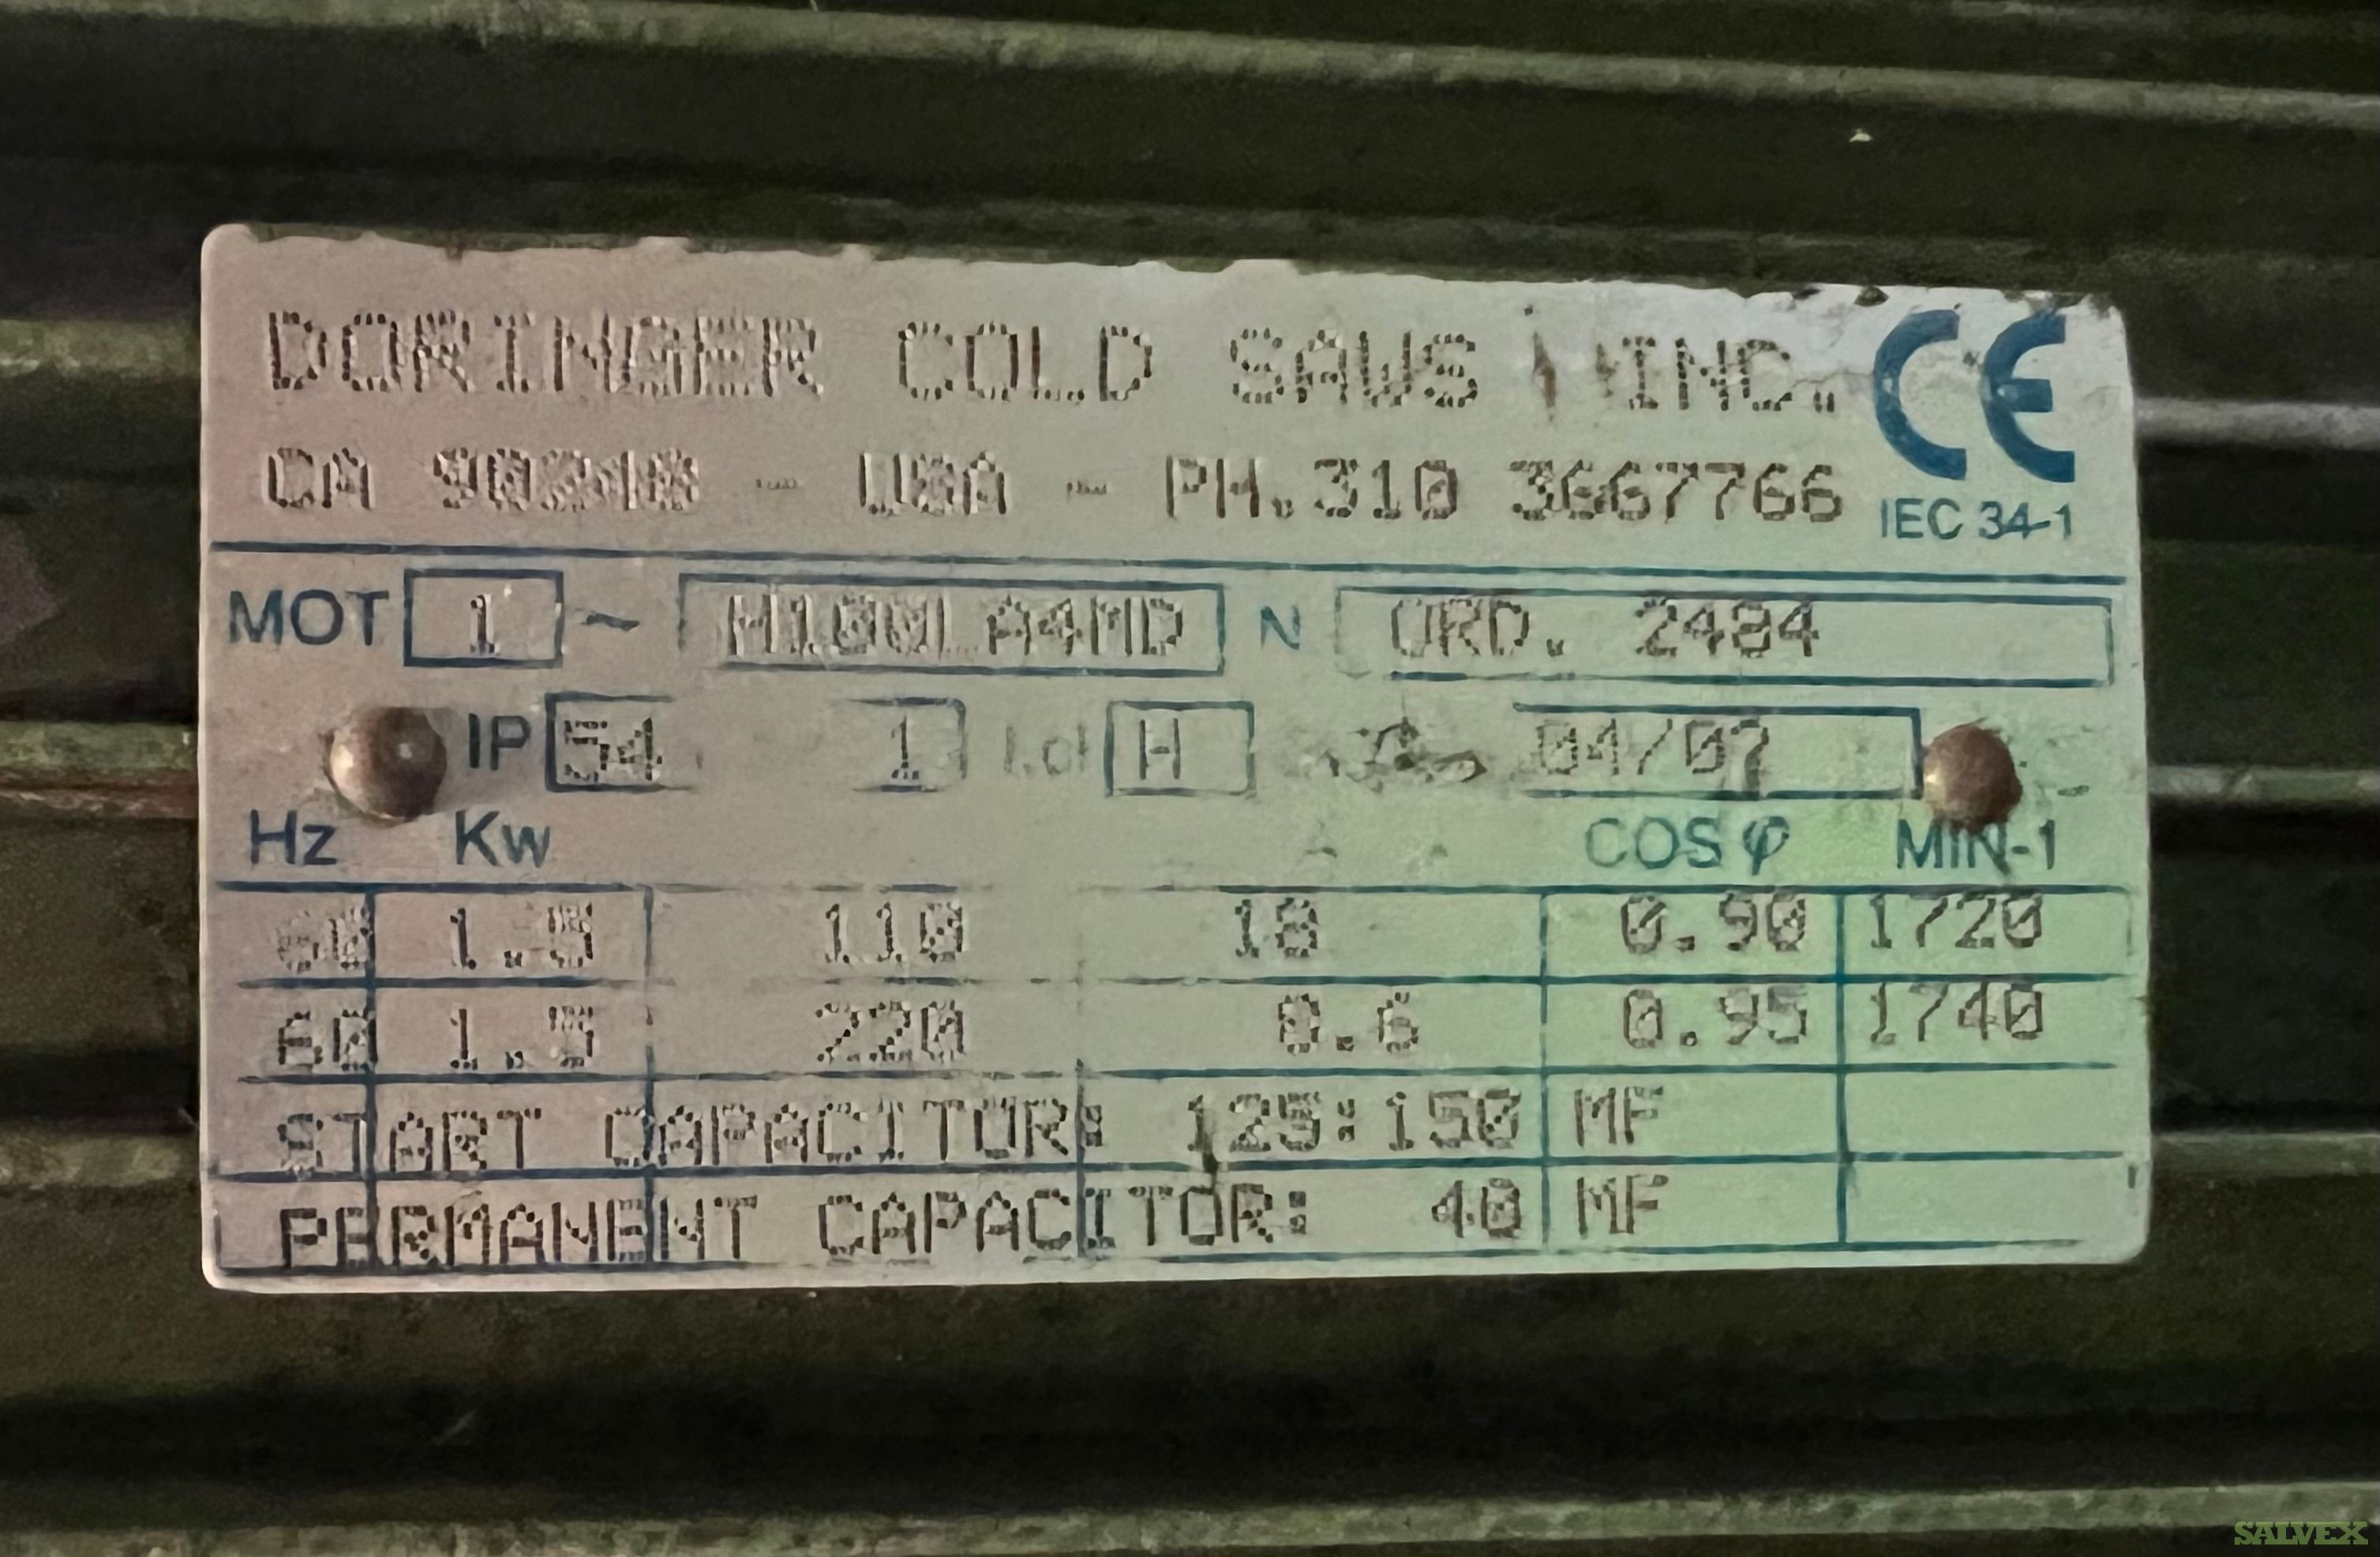 DORINGER COLD SAWS INC. CE
CA - USA - PH.310 3667766
IEC 34-1
MOT 1 ~ M100LA4MD N ORD. 2484
IP 54 1 I.cl H 04/02
Hz Kw COS φ MIN-1
60 1.5 110 18 0.90 1720
60 1.5 220 8.6 0.95 1740
START CAPACITOR: 125:150 MF
PERMANENT CAPACITOR: 40 MF
SALVEX